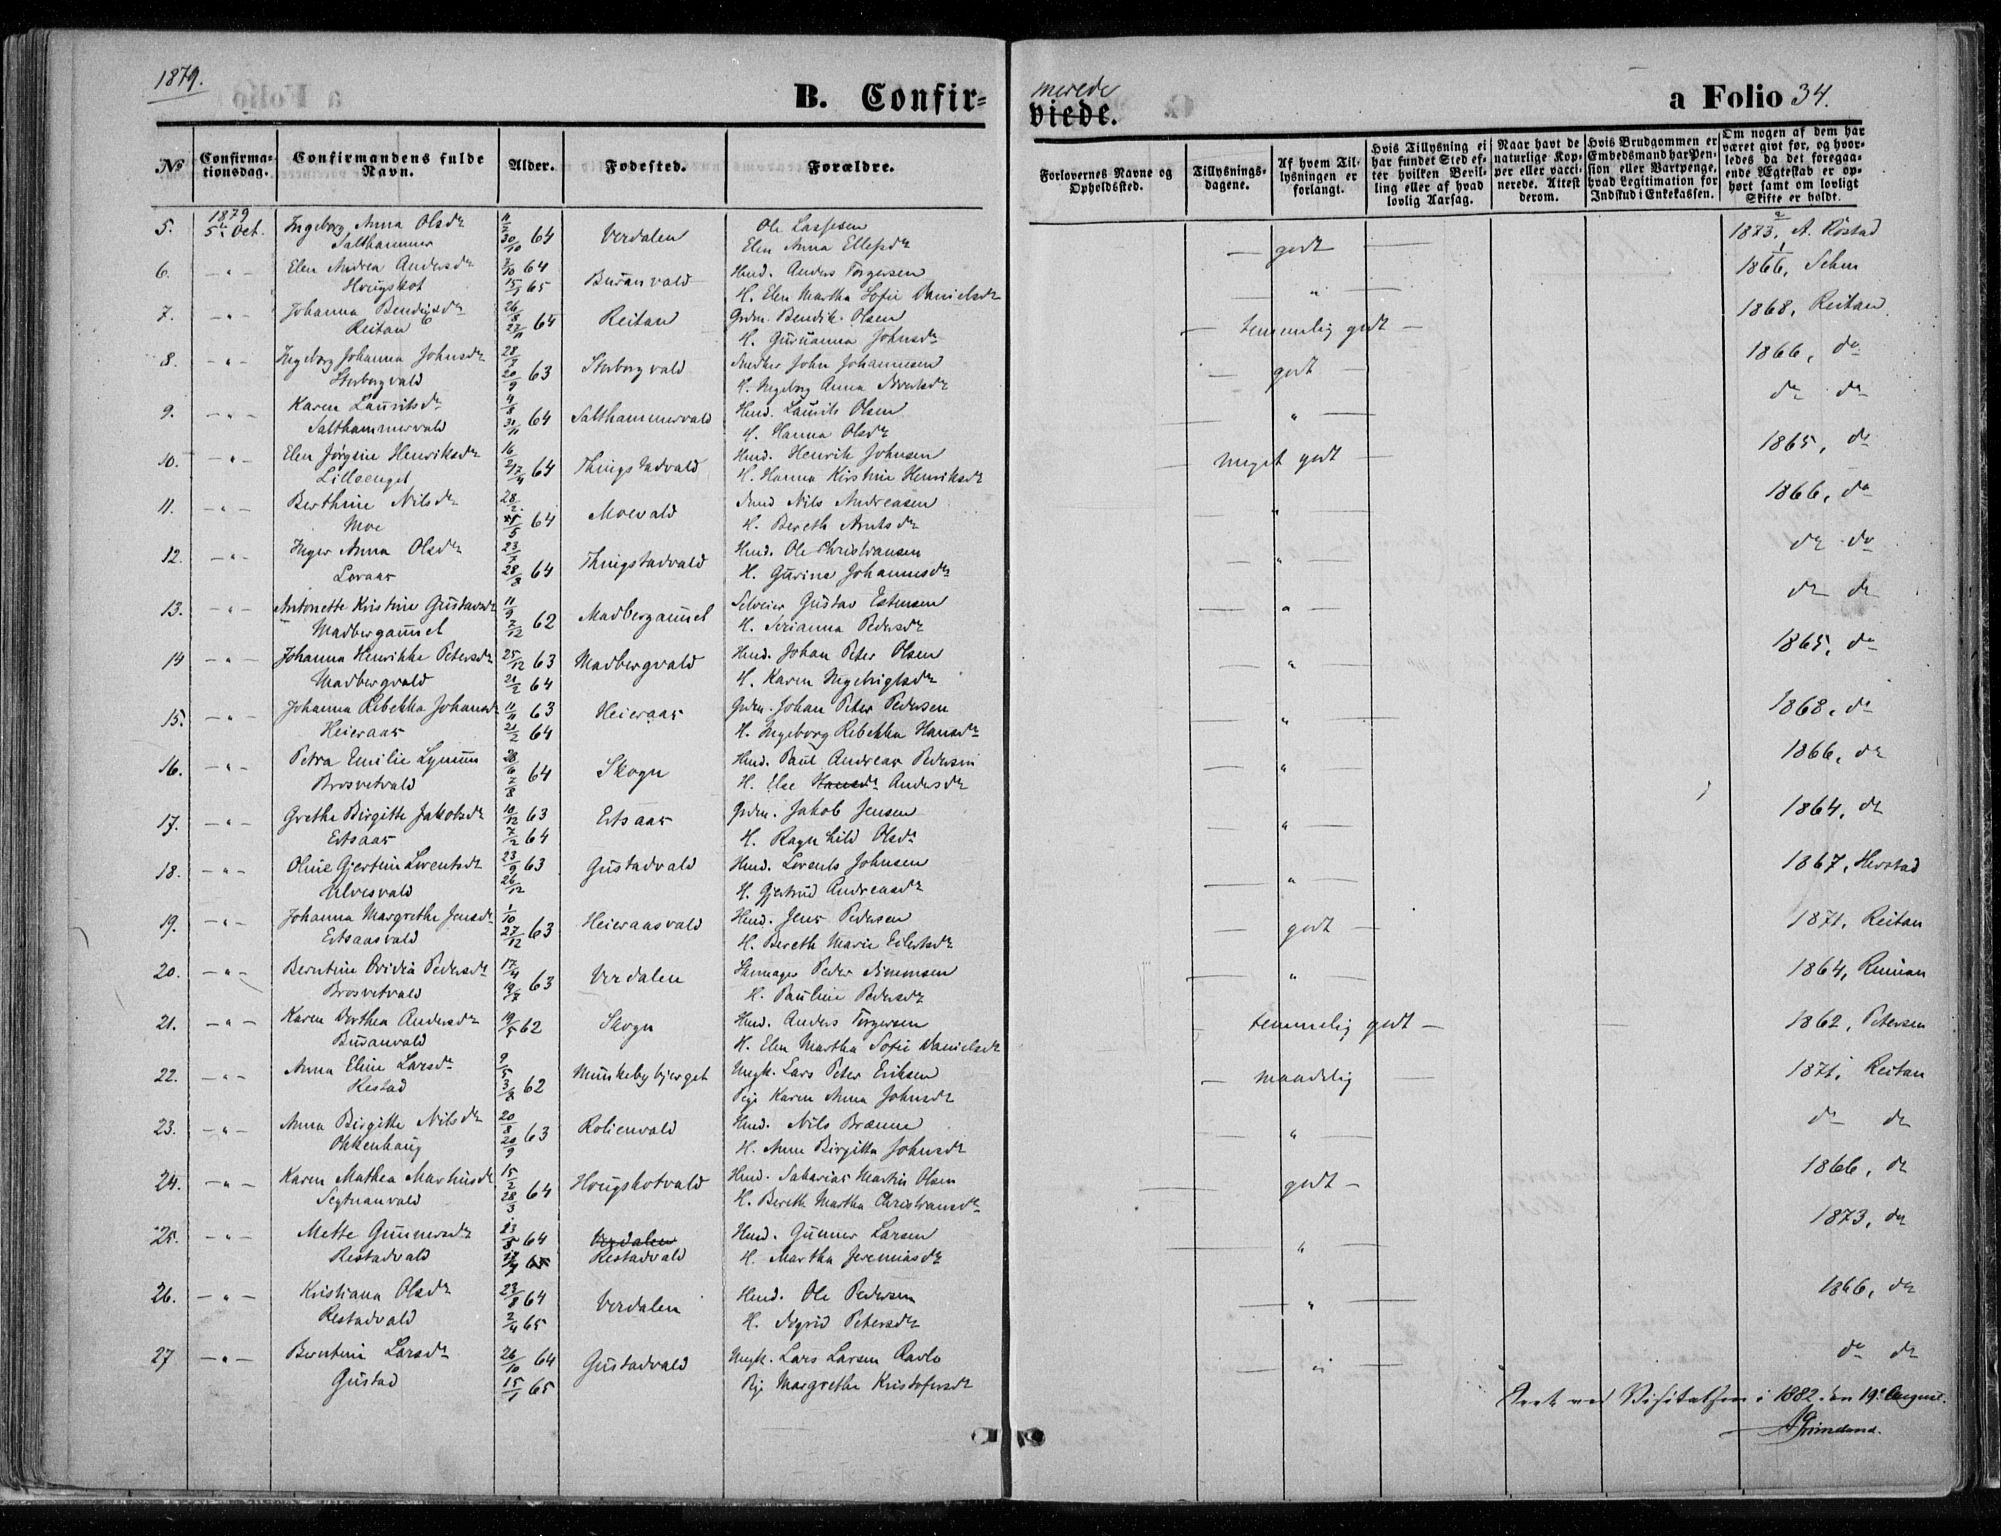 1879.
B. Confir=
merede
viede.
a Folio 34.
No
Confirma-
tionsdag.
Confirmandens fulde
Navn.
Alder.
Fødested.
Forældre.
Forlovernes Navne og
Opholdssted.
Tillysnings-
dagene.
Af hvem Til-
lysningen er
forlangt.
Hvis Tillysning ei
har fundet Sted ef-
ter hvilken Bevil-
ling eller af hvad
lovlig Aarsag.
Naar havt de
naturlige Kop-
per eller vacci-
nerede. Attest
derom.
Hvis Brudgommen er
Embedsmand har Pen-
sion eller Vartpenge,
hvad Legitimation for
Indskud i Enkekassen.
Om nogen af dem har
været givt før, og hvor-
ledes da det foregaa-
ende Ægteskab er op-
hørt samt om lovligt
Skifte er holdt.
5. 1879 5. Oct. Ingeborg Anna Olsdr Salthammer 30/10 64 Verdalen Ole Lassesen Elen Anna Ellefsdr — godt — 1873, A. Röstad
6. — " — Elen Andrea Andersdr Hougskot 3/10 64 15/1 65 Buranvald Husmd. Anders Torgersen H. Elen Martha Sofie Danielsdr — " — 1866, Sehm
7. — " — Johanna Bendiksdr Reitan 26/8 27/11 64 Reitan Grdm. Bendik Olsen H. Guruanna Johnsdr — temmelig godt — 1868, Reitan
8. — " — Ingeborg Johanna Johnsdr Storborgvald 28/7 20/9 63 Storborgvald John Johannesen H. Ingeborg Anna Sivertsdr — godt — 1866, do
9. — " — Karen Lauritsdr Salthammervald 4/8 64 Salthammervald Husmd. Laurits Olsen H. Hanna Olsdr " — do do
10. — " — Elen Jørgine Henriksdr Lilleenget 16/2 17/4 64 Thingstadvald Husmd. Henrik Johnsen H. Hanna Kirstine Henriksdr — meget godt — 1865, do
11. — " — Berthine Nilsdr Moe 28/2 5/5 64 Moevald Husmd Nils Andreasen H. Bereth Arntsdr — " — 1866, do
12. — " — Inger Anna Olsdr Loraas 23/7 28/8 64 Thingstadvald Husmd. Ole Christiansen H. Gurine Johannesdr — " — do do
13. — " — Antonette Kristine Gustavsdr Madbergaunet 11/9 7/12 62 Madbergaunet Selveier Gustav Estensen H. Serianna Pedersdr — " — do do
14 — " — Johanna Henrikke Petersdr Madbergvald 25/12 63 21/2 64 Madbergvald Husmd. Johan Peter Olsen H. Karen Ingebrigtsdr — " — 1865, do
15. — " — Johanna Rebekka Johansdr Heieraas 11/11 63 21/2 64 Heieraas Grdm. Johan Peter Pedersen H. Ingeborg Rebekka Hansdr — " — 1868, do
16. — " — Petra Emilie Lynum Brosvetvald 28/6 7/8 64 Skogn Husmd. Paul Andreas Pedersen H. Else Hansdr Andersdr — " — 1866, do
17. — " — Grethe Birgitte Jakobsdr Ertsaas 10/12 63 7/2 64 Ertsaas Grdm. Jakob Jensen H. Ragnhild Olsdr — " — 1864, do
18. — " — Oline Gjertine Lorentsdr Ulvesvald 23/9 63 26/12 Gustadvald Husmd. Lorents Johnsen H. Gjertrud Andreasdr — " — 1867, Herstad
19. — " — Johanna Margrethe Jensdr Ertsaasvald 1/10 27/12 63 Heieraasvald Husmd. Jens Pedersen H. Bereth Marie Eilertsdr — godt — 1871, Reitan
20. — " — Berntine Ovidia Pedersdr Brosvetvald 17/4 19/7 63 Verdalen Skomager Peder Simonsen H. Pauline Pedersdr — " — 1864,
21. — " — Karen Dorthea Andersdr Buranvald 19/5 62 Skogn Husmd. Anders Torgersen H. Elen Martha Sofie Danielsdr — temmelig godt — 1862, Petersen
22. — " — Anna Eline Larsdr Restad 9/5 3/8 62 Munkebybjerget Ungk. Lars Peter Eriksen Pige Karen Anna Johnsdr — maadelig — 1871, Reitan
23. — " — Anna Birgitte Nilsdr Okkenhaug 20/8 20/9 63 Rolienvald Husmd. Nils Brænne H. Anne Birgitte Johnsdr — " — do do
24. — " — Karen Mathea Martinsdr Segtnanvald 15/2 28/3 64 Hougskotvald Husmd. Sakarias Martin Olsen H. Bereth Martha Christiansdr godt — 1866, do
25. — " — Mette Gunnersdr Restadvald 23/5 64 Verdalen Restadvald Husmd. Gunner Larsen H. Martha Jeremiasdr — " — 1873, do
26. — " — Kristiana Olsdr Restadvald 23/8 64 2/4 65 Verdalen Husmd. Ole Pedersen H. Sigrid Petersdr — " — 1866, do
27 — " — Berntine Larsdr Gustad 26/10 64 15/1 65 Gustadvald Ungk. Lars Larsen Ravlo Pige Margrethe Kristofersdr — " — do do
Seet ved Visitatsen i 1882 den 19. August.